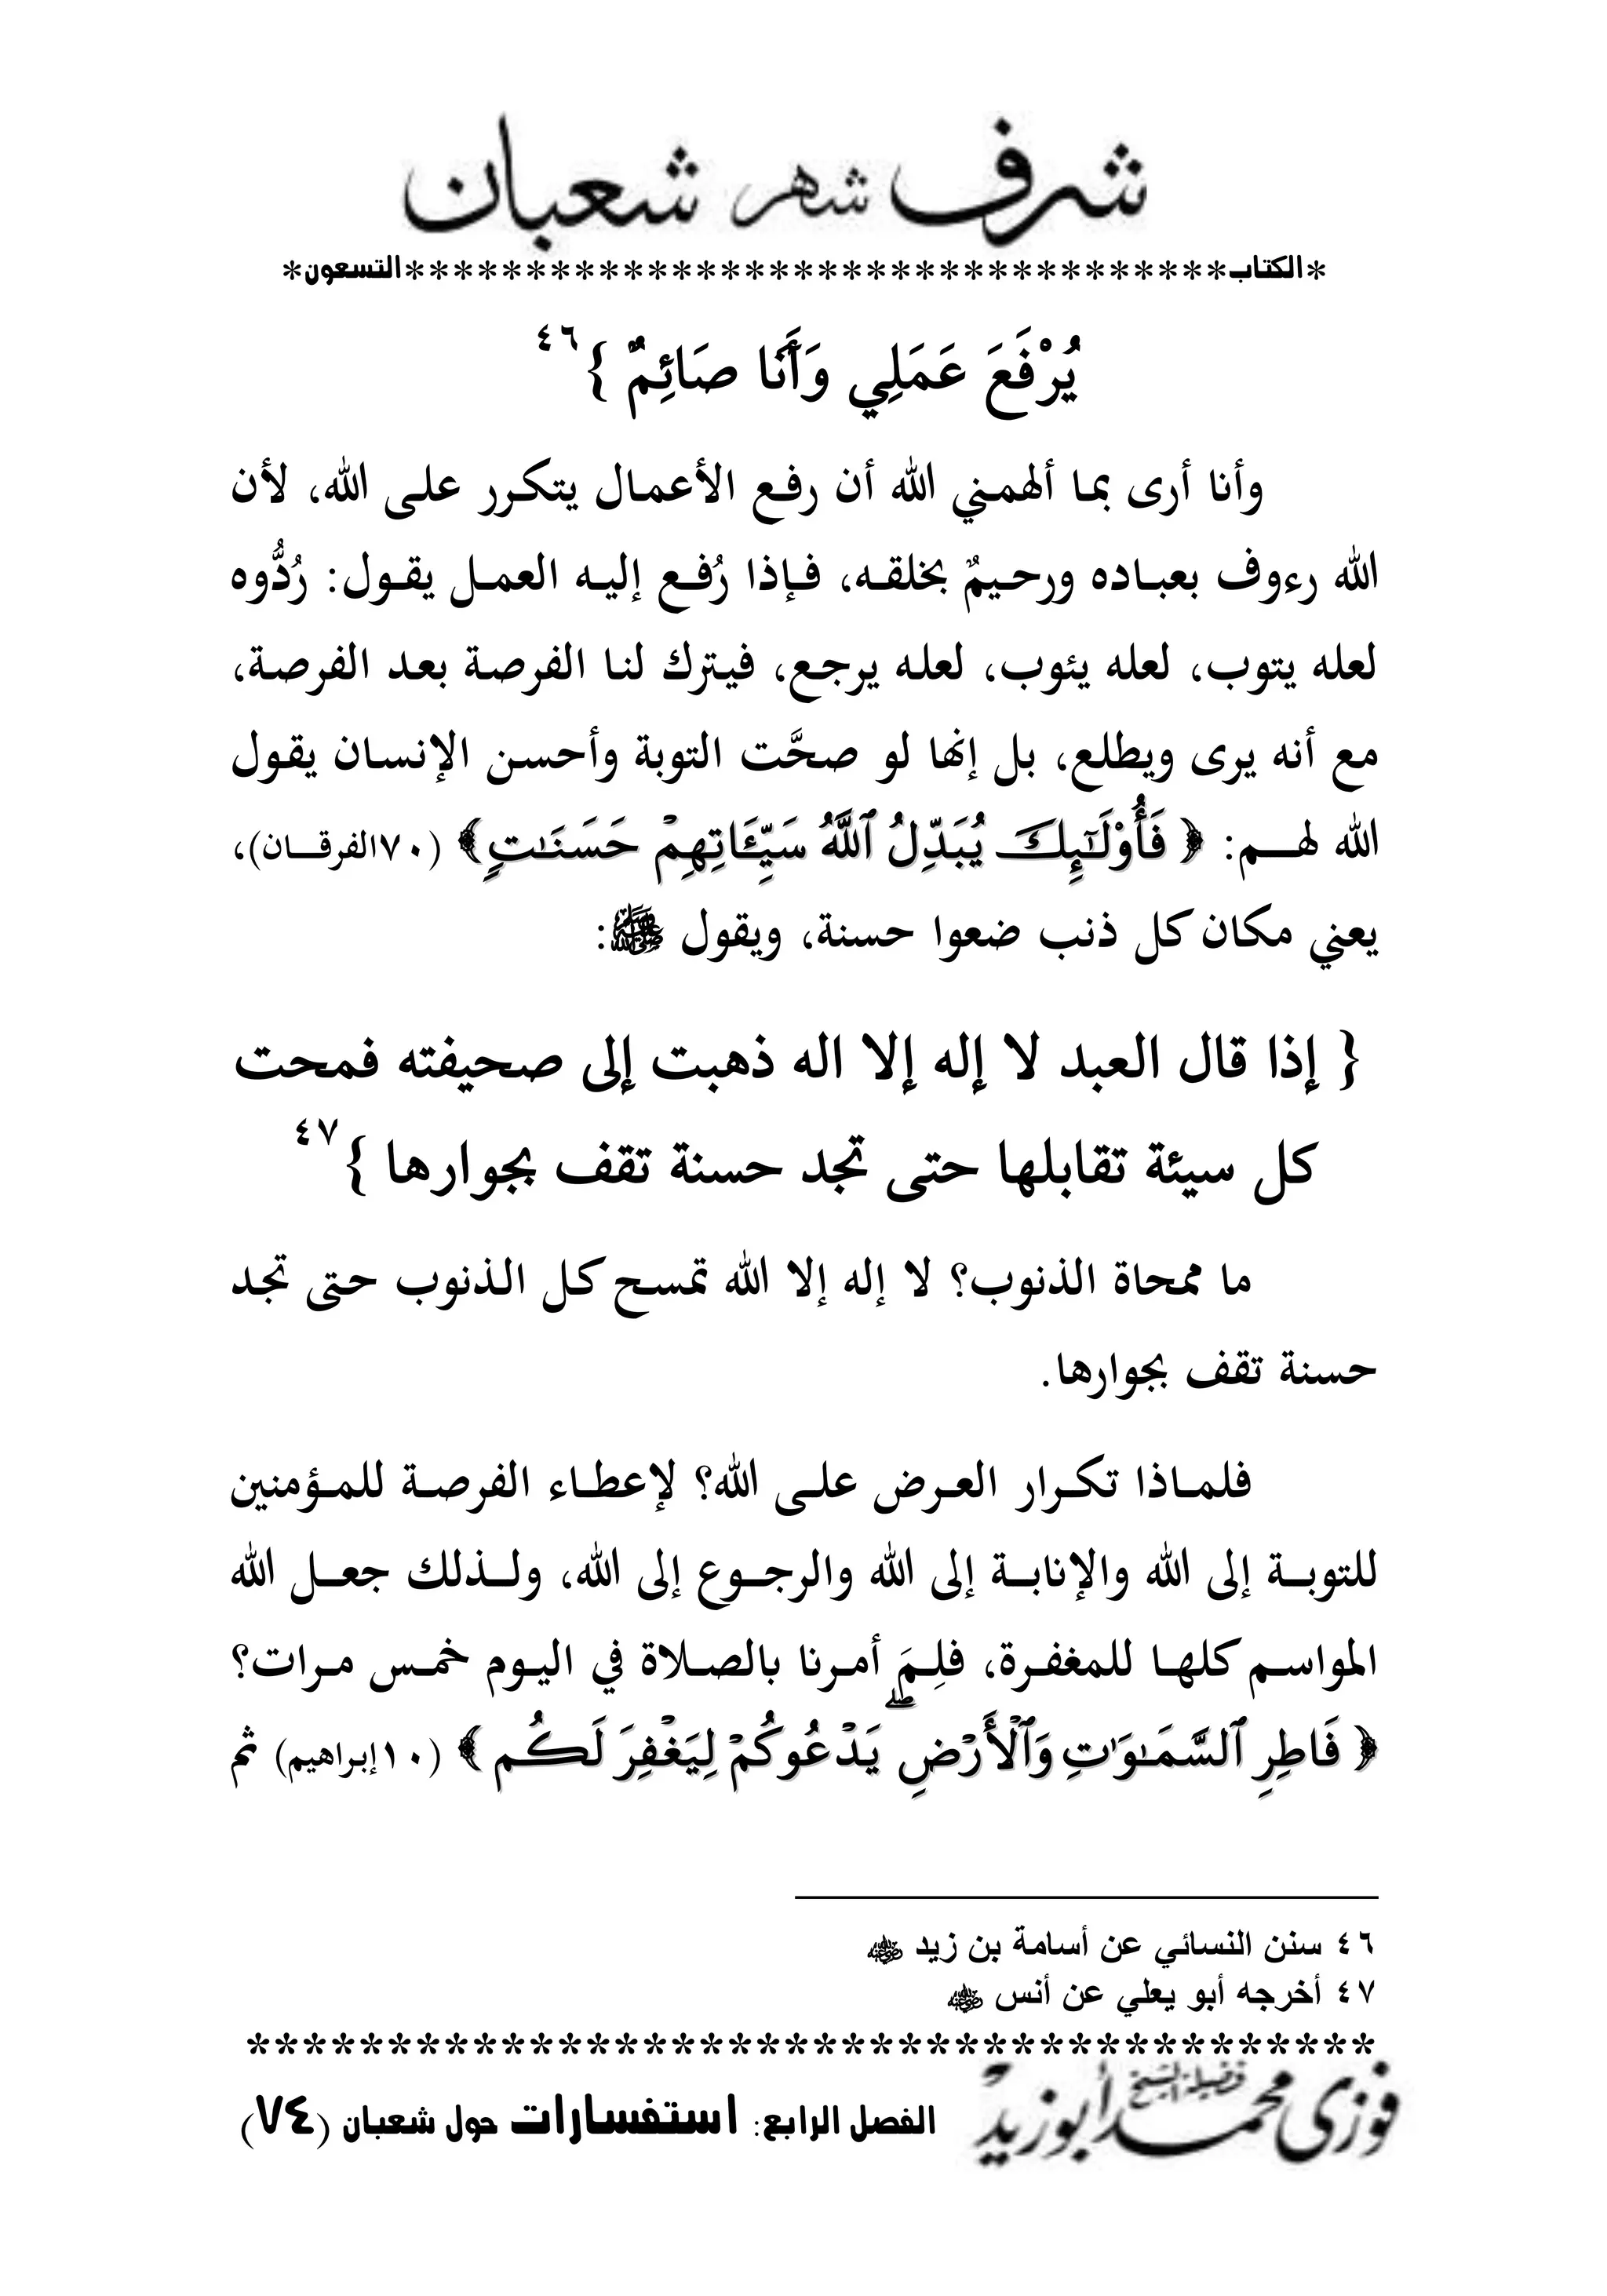 شرف شهر شعبان
*الكتاب**********************************التسعون*
يُرْفَعَ عَمَلِي وَأَنَا صَائِمٌ }٤٦
وأنا أرى بما ألهمني الله أن رفع الأعمال يتكرر على الله، لأن
الله رءوف بعباده ورحيمٌ بخلقه، فإذا رُفع إليه العمل يقول: رُدُّوه
لعله يتوب، لعله يئوب، لعله يرجع، فيترك لنا الفرصة بعد الفرصة،
مع أنه يرى ويطلع، بل إنها لو صحَّت التوبة وأحسن الإنسان يقول
الله لهم: ﴿ فَأُوْلَٰٓئِكَ يُبَدِّلُ ٱللَّهُ سَيِّـَٔاتِهِمۡ حَسَنَٰتٍ﴾ (٧٠الفرقان)،
يعني مكان كل ذنب ضعوا حسنة، ويقول ﷺ:
{ إذا قال العبد لا إله إلا اله ذهبت إلى صحيفته فمحت
كل سيئة تقابلها حتى تجد حسنة تقف بجوارها }٤٧
ما ممحاة الذنوب؟ لا إله إلا الله تمسح كل الذنوب حتى تجد
حسنة تقف بجوارها.
فلماذا تكرار العرض على الله؟ لإعطاء الفرصة للمؤمنين
للتوبة إلى الله والإنابة إلى الله والرجوع إلى الله، ولذلك جعل الله
المواسم كلها للمغفرة، فلِمَ أمرنا بالصلاة في اليوم خمس مرات؟
﴿ فَاطِرِ ٱلسَّمَٰوَٰتِ وَٱلۡأَرۡضِۖ يَدۡعُوكُمۡ لِيَغۡفِرَ لَكُم ﴾ (١٠إبراهيم) ثم
٤٦ سنن النسائي عن أسامة بن زيد ﵁
٤٧ أخرجه أبو يعلي عن أنس ﵁
****************************************
فضيلة الشيخ فوزى محمد أبوزيد الفصل الرابع: استفسارات حول شعبان (٧٤)